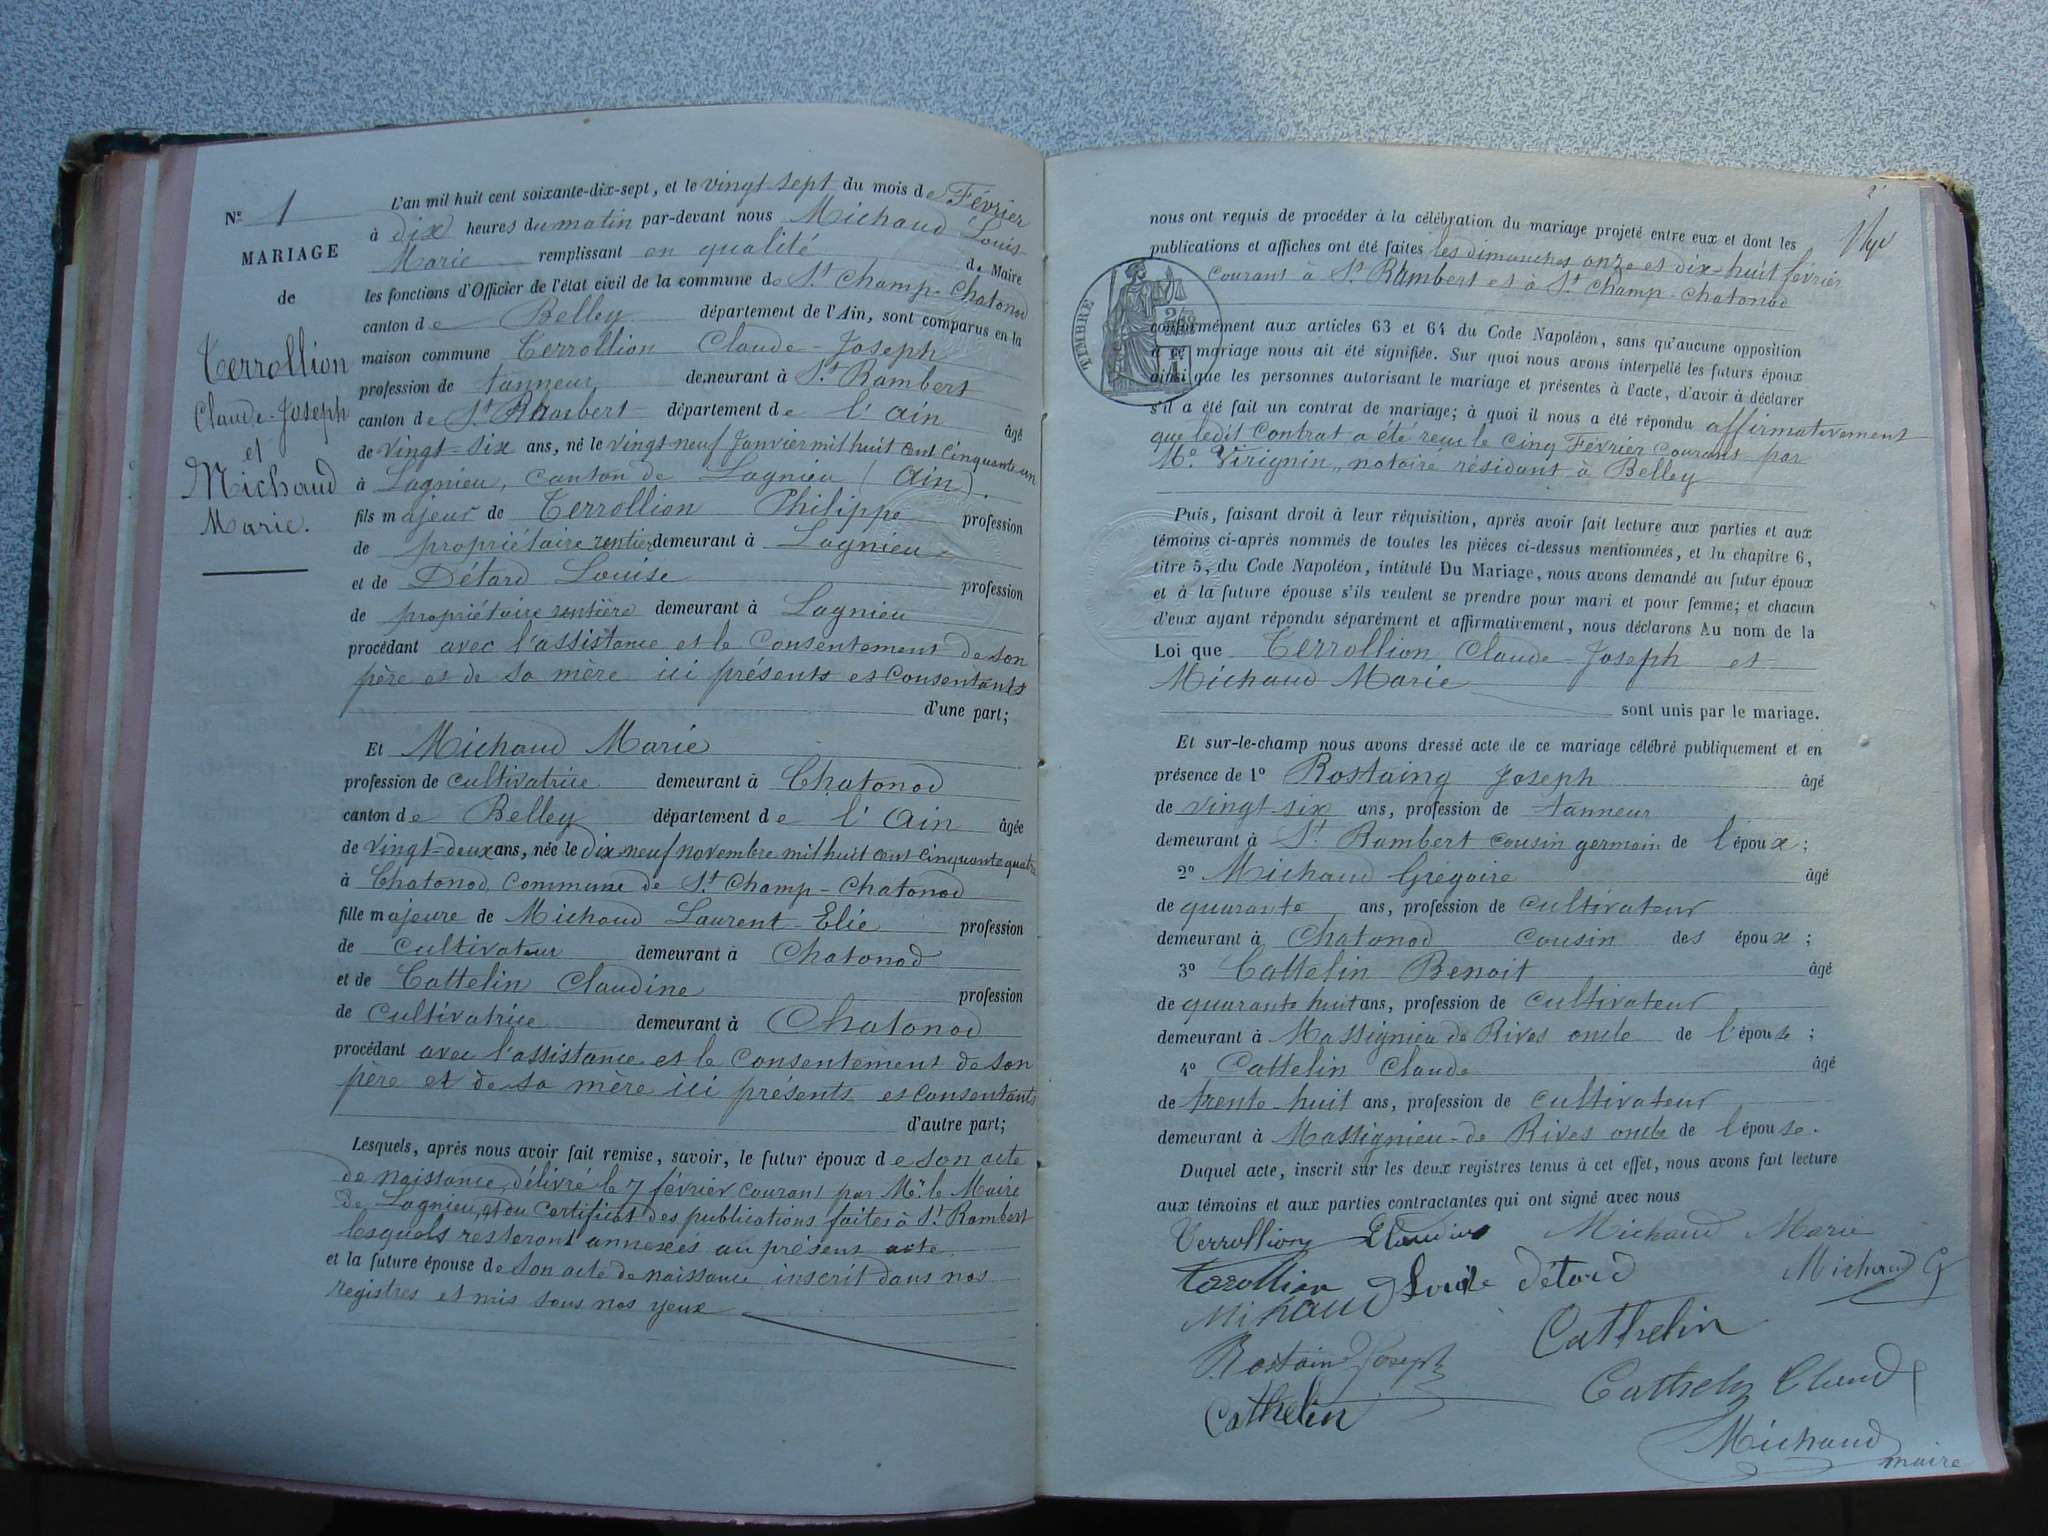 N° 1
MARIAGE
de
Terrollion
Claude-Joseph
et
Michaud
Marie.
L'an mil huit cent soixante-dix-sept, et le vingt-sept du mois de Février
à dix heures du matin par-devant nous Michaud Louis
Marie remplissant en qualité de Maire
les fonctions d'Officier de l'état civil de la commune de St Champ-Chatonod
canton de Belley département de l'Ain, sont comparus en la
maison commune Terrollion Claude-Joseph
profession de tanneur demeurant à St Rambert
canton de St Rambert département de l'Ain âgé
de vingt-six ans, né le vingt neuf Janvier mil huit cent cinquante un
à Lagnieu, canton de Lagnieu (Ain).
fils majeur de Terrollion Philippe profession
de propriétaire rentier demeurant à Lagnieu
et de Détard Louise profession
de propriétaire rentière demeurant à Lagnieu
procédant avec l'assistance et le consentement de son
père et de sa mère ici présents et consentants
d'une part;
Et Michaud Marie
profession de cultivatrice demeurant à Chatonod
canton de Belley département de l'Ain âgée
de vingt-deux ans, née le dix neuf novembre mil huit cent cinquante quatre
à Chatonod, commune de St Champ-Chatonod
fille majeure de Michaud Laurent-Elie profession
de cultivateur demeurant à Chatonod
et de Cattelin Claudine profession
de cultivatrice demeurant à Chatonod
procédant avec l'assistance et le consentement de son
père et de sa mère ici présents et consentants
d'autre part;
Lesquels, après nous avoir fait remise, savoir, le futur époux de son acte
de naissance, délivré le 7 février courant par Mr le Maire
de Lagnieu, et du certificat des publications faites à St Rambert
lesquels resteront annexés au présent acte
et la future épouse de son acte de naissance inscrit dans nos
registres et mis sous nos yeux
nous ont requis de procéder à la célébration du mariage projeté entre eux et dont les
publications et affiches ont été faites les dimanches onze et dix-huit février
courant à St Rambert et à St Champ-Chatonod
TIMBRE
conformément aux articles 63 et 64 du Code Napoléon, sans qu'aucune opposition
à ce mariage nous ait été signifiée. Sur quoi nous avons interpellé les futurs époux
ainsi que les personnes autorisant le mariage et présentes à l'acte, d'avoir à déclarer
s'il a été fait un contrat de mariage; à quoi il nous a été répondu affirmativement
que ledit contrat a été reçu le cinq Février courant par
Me Virignin, notaire résidant à Belley
Puis, faisant droit à leur réquisition, après avoir fait lecture aux parties et aux
témoins ci-après nommés de toutes les pièces ci-dessus mentionnées, et lu chapitre 6,
titre 5, du Code Napoléon, intitulé Du Mariage, nous avons demandé au futur époux
et à la future épouse s'ils veulent se prendre pour mari et pour femme; et chacun
d'eux ayant répondu séparément et affirmativement, nous déclarons Au nom de la
Loi que Terrollion Claude-Joseph et
Michaud Marie
sont unis par le mariage.
Et sur-le-champ nous avons dressé acte de ce mariage célébré publiquement et en
présence de 1° Rostaing Joseph âgé
de vingt-six ans, profession de tanneur
demeurant à St Rambert cousin germain de l'époux;
2° Michaud Grégoire âgé
de quarante ans, profession de cultivateur
demeurant à Chatonod cousin des époux;
3° Cattelin Benoit âgé
de quarante huit ans, profession de cultivateur
demeurant à Massignieu de Rives oncle de l'épouse;
4° Cattelin Claude âgé
de trente huit ans, profession de cultivateur
demeurant à Massignieu-de Rives oncle de l'épouse.
Duquel acte, inscrit sur les deux registres tenus à cet effet, nous avons fait lecture
aux témoins et aux parties contractantes qui ont signé avec nous
Terrollion Claudius Michaud Marie
Terrollion Louise Détard Michaud G
Mihaud
Cathelin
Rostaing Joseph
Cathelin Claude
Cathelin
Michaud
maire